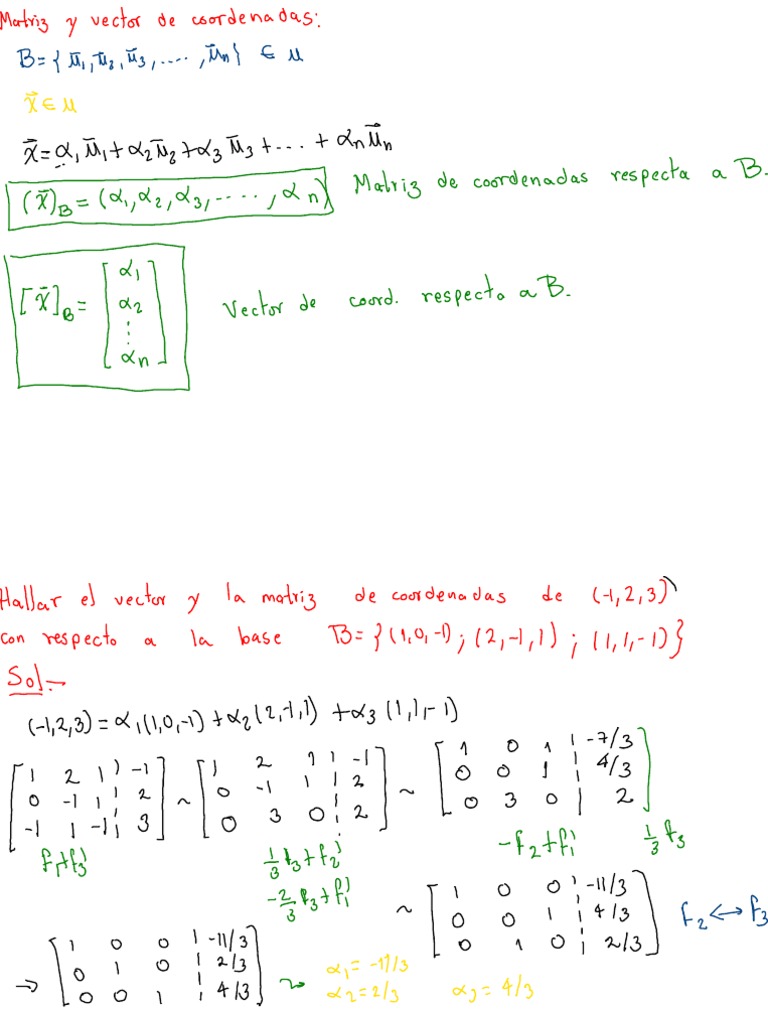 Matriz y vector de coordenadas:
B={ū₁,ū₂,ū₃,....,ūn} ∈ u
x̄ ∈ u
x̄=α₁ū₁+α₂ū₂+α₃ū₃+...+αnūn
(x̄)B=(α₁,α₂,α₃,....,αn) Matriz de coordenadas respecta a B.
[x̄]B= [α₁ α₂ ⋮ αn] Vector de coord. respecto a B.
Hallar el vector y la matriz de coordenadas de (-1,2,3)
con respecto a la base B={(1,0,-1);(2,-1,1);(1,1,-1)}
Sol.-
(-1,2,3)=α₁(1,0,-1)+α₂(2,-1,1)+α₃(1,1,-1)
[1 2 1 ¦ -1 ~ [1 2 1 ¦ -1 ~ [1 0 1 ¦ -7/3
0 -1 1 ¦ 2 0 -1 1 ¦ 2 0 0 1 ¦ 4/3
-1 1 -1 ¦ 3] 0 3 0 ¦ 2] 0 3 0 | 2]
f₁+f₃' 1/3 f₃+f₂' -f₂+f₁' 1/3 f₃
-2/3 f₃+f₁'
~ [1 0 0 ¦ -11/3
0 0 1 ¦ 4/3
0 1 0 ¦ 2/3] f₂↔f₃
→ [1 0 0 ¦ -11/3
0 1 0 ¦ 2/3
0 0 1 ¦ 4/3] ↝ α₁=-11/3
α₂=2/3 α₃=4/3